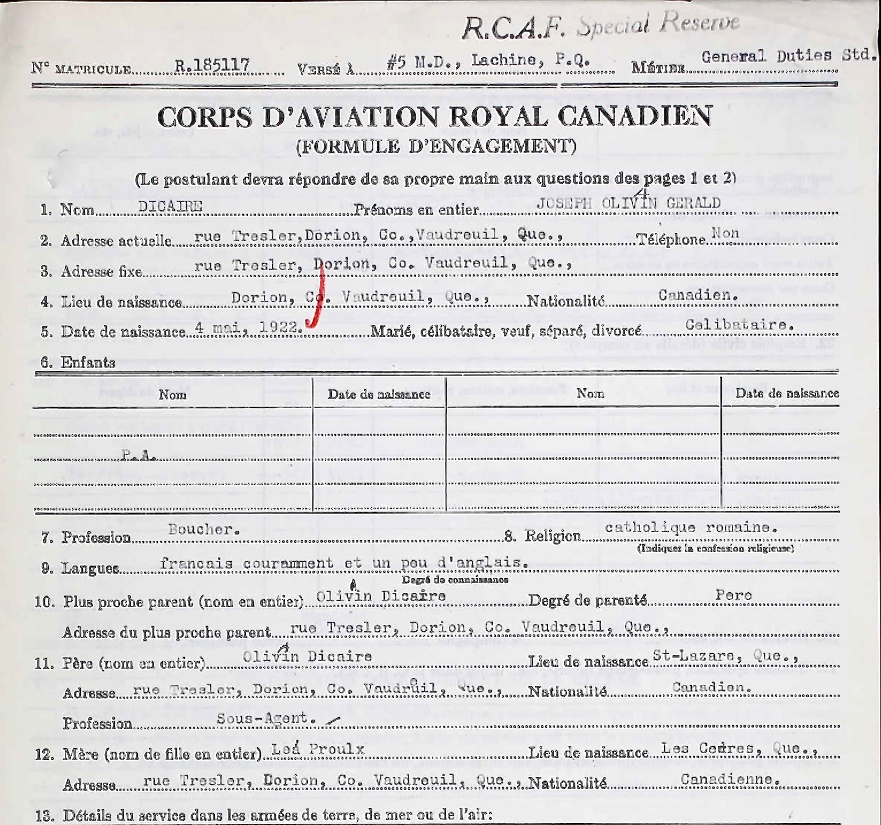 R.C.A.F. Special Reserve
N° MATRICULE R.185117 VERSÉ À #5 M.D., Lachine, P.Q. MÉTIER General Duties Std.
CORPS D'AVIATION ROYAL CANADIEN
(FORMULE D'ENGAGEMENT)
(Le postulant devra répondre de sa propre main aux questions des pages 1 et 2)
1. Nom DICAIRE Prénoms en entier JOSEPH OLIVIN GERALD
2. Adresse actuelle rue Tresler,Dorion, Co.,Vaudreuil, Que., Téléphone Non
3. Adresse fixe rue Tresler, Dorion, Co. Vaudreuil, Que.,
4. Lieu de naissance Dorion, Co. Vaudreuil, Que., Nationalité Canadien.
5. Date de naissance 4 mai, 1922. Marié, célibataire, veuf, séparé, divorcé Celibataire.
6. Enfants
Nom Date de naissance Nom Date de naissance
P.A.
7. Profession Boucher. 8. Religion catholique romaine.
(Indiquez la confession religieuse)
9. Langues francais couramment et un peu d'anglais.
Degré de connaissance
10. Plus proche parent (nom en entier) Olivin Dicaire Degré de parenté Pere
Adresse du plus proche parent rue Tresler, Dorion, Co. Vaudreuil, Que.,
11. Père (nom en entier) Olivin Dicaire Lieu de naissance St-Lazare, Que.,
Adresse rue Tresler, Dorion, Co. Vaudruil, Que., Nationalité Canadien.
Profession Sous-Agent.
12. Mère (nom de fille en entier) Leá Proulx Lieu de naissance Les Cedres, Que.,
Adresse rue Tresler, Dorion, Co. Vaudreuil, Que., Nationalité Canadienne.
13. Détails du service dans les armées de terre, de mer ou de l'air: